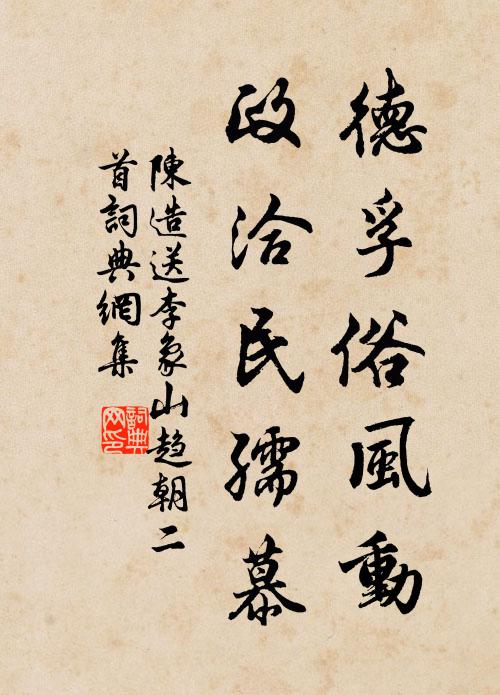 德孚俗風動
政洽民孺慕
陳造送李象山趋朝二
首詞典網集
詞典網印